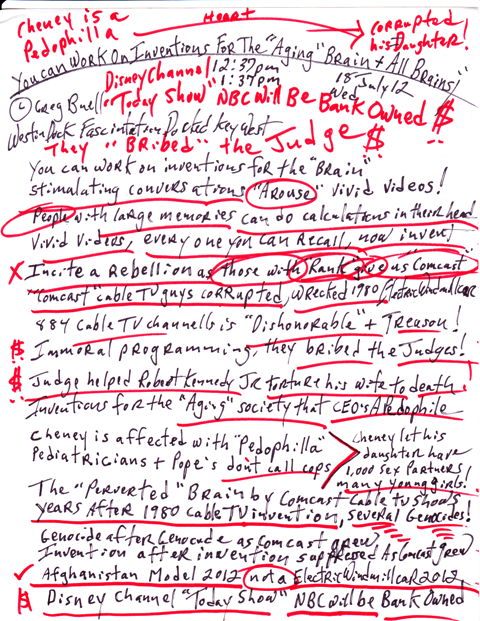 Cheney is a Pedophilla
Heart
Corrupted his Daughter!
You can Work On Inventions For The "Aging" Brain + All Brains!
Disney Channel 12:37pm
1:37pm
18 July 12
Wed
Greg Buell "Today Show" NBC Will Be Bank Owned $
Westin Dock Fascination Docked Key West
They "BRibed" the Judge $
You can work on inventions for the "Brain"
stimalating conversations "Arouse" vivid videos!
People with large memories can do calculations in their head
Vivid Videos, every one you can Recall, now invent
X Incite a Rebellion as those with "Rank" give us "Comcast"
"Comcast" cable TV guys corrupted, wrecked 1980 Electricwindmillcar
884 Cable TV channells is "Dishonorable" + Treason!
$ Immoral programming, they bribed the Judges!
$ Judge helped Robert Kennedy JR torture his wife to death!
Inventions for the "Aging" society that CEO's A Pedophile
Cheney is affected with "Pedophilla"
Pediatricians + Pope's don't call cops
Cheney let his daughter have 1,000 sex Partners many young girls!
The "Perverted" Brain by Comcast Cable TV Shows
years After 1980 cable TV invention, several Genocides!
Genocide after Genocude as Comcast grew
Invention after invention suppressed As Comcast grew
✓ Afghanistan Model 2012 not a ElectricWindmillcar 2012,
$ Disney Channel "Today Show" NBC will be Bank Owned